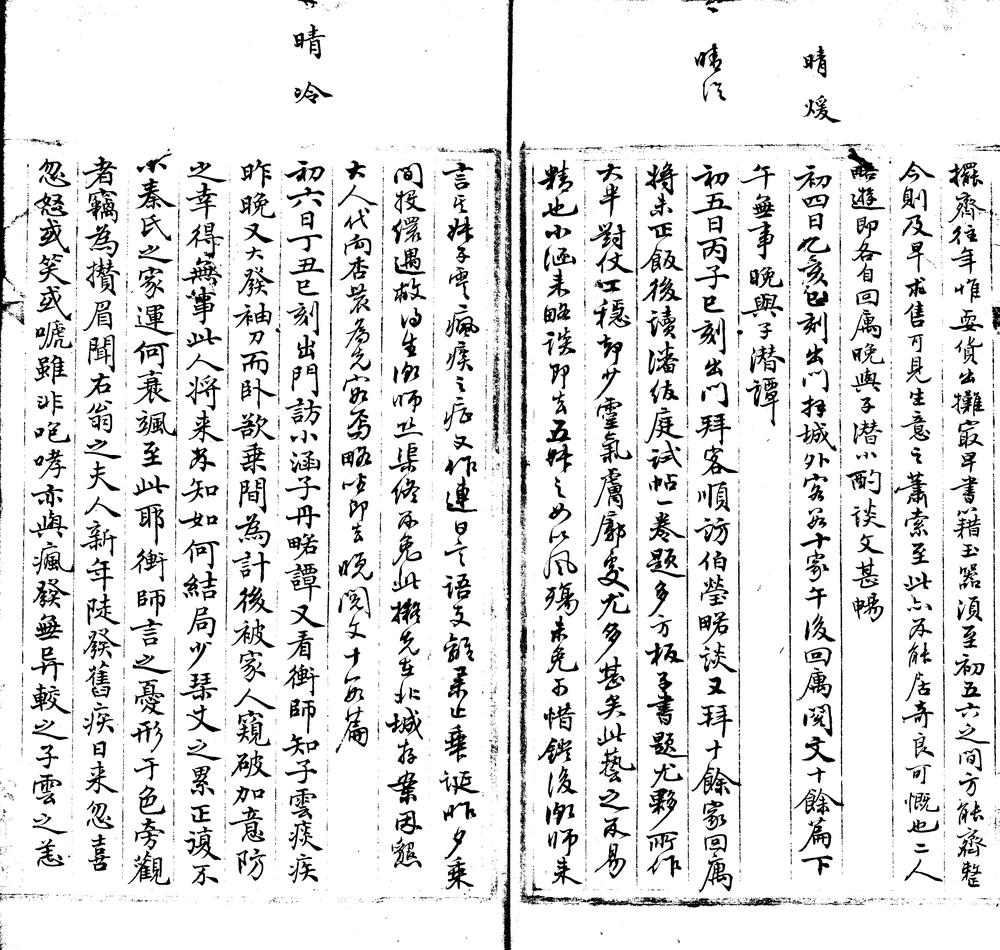 擺齊往年惟耍貨出攤最早書籍玉器須至初五六之間方能齊整
今則及早求售可見生意之蕭索至此亦不能居奇良可慨也二人
略遊即各自回寓晚與子潛小酌談文甚暢
晴煖
初四日乙亥巳刻出門拜城外客數十家午後回寓閱文十餘篇下
午無事晚與子潛譚
晴
初五日丙子巳刻出門拜客順訪伯瑩略談又拜十餘家回寓
將未正飯後讀潘紱庭試帖一卷題多方板子書題尤夥所作
大半對仗工穩却少靈氣膚廓處尤多甚矣此藝之不易
精也小涵來略談即去五妹之女以風殤未免可惜鐙後衡師來
言其妹子雲瘋疾之症又作連日言語支離舉止乖誕昨夕乘
間投繯遇救得生衡師 渠終不免此擬先在北城存案因懇
大人代向杏農為先容焉略坐即去晚閱文十數篇
晴冷
初六日丁丑巳刻出門訪小涵子丹略譚又看衡師知子雲痰疾
昨晚又大發袖刀而臥欲乘間為計後被家人窺破加意防
之幸得無事此人將來未知如何結局少琹丈之累正復不
小秦氏之家運何衰颯至此耶衡師言之憂形于色旁觀
者竊為攢眉聞右翁之夫人新年陡發舊疾日來忽喜
忽怒或笑或啼雖非咆哮亦與瘋發無异較之子雲之恙